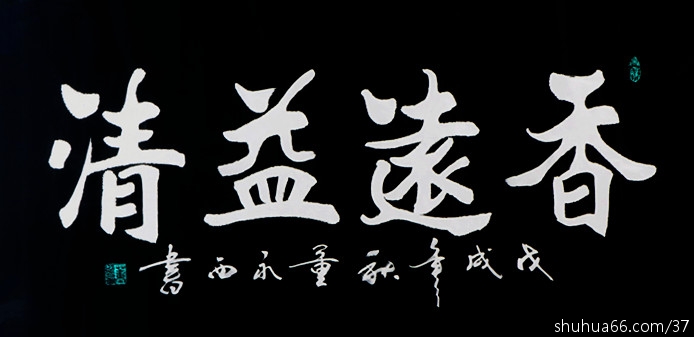 香遠益清
戊戌年秋董永西書
shuhua66.com/37